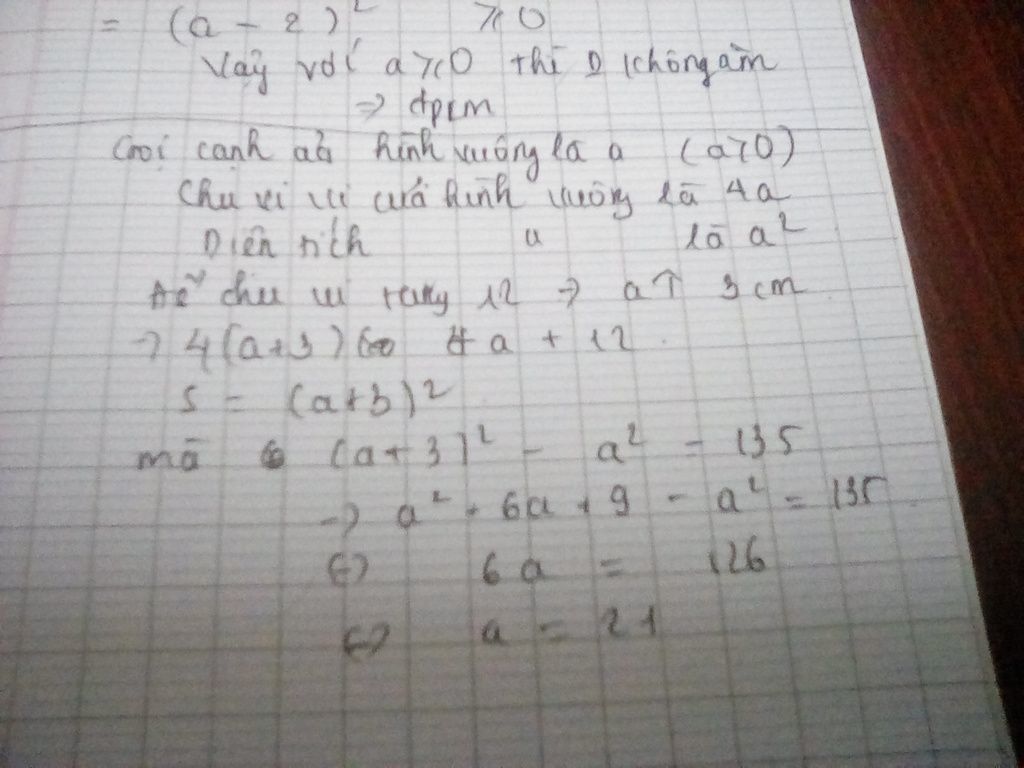 = (a - 2)² ≥ 0
Vậy với a ≥ 0 thì D không âm
=> đpcm
Gọi cạnh của hình vuông là a (a>0)
Chu vi vi của hình vuông là 4a
Diện tích " là a²
Để chu vi tăng 12 => a↑ 3 cm
-> 4(a+3) 4a + 12.
S = (a+3)²
mà (a+3)² - a² = 135
-> a² + 6a + 9 - a² = 135
<=> 6a = 126
<=> a = 21